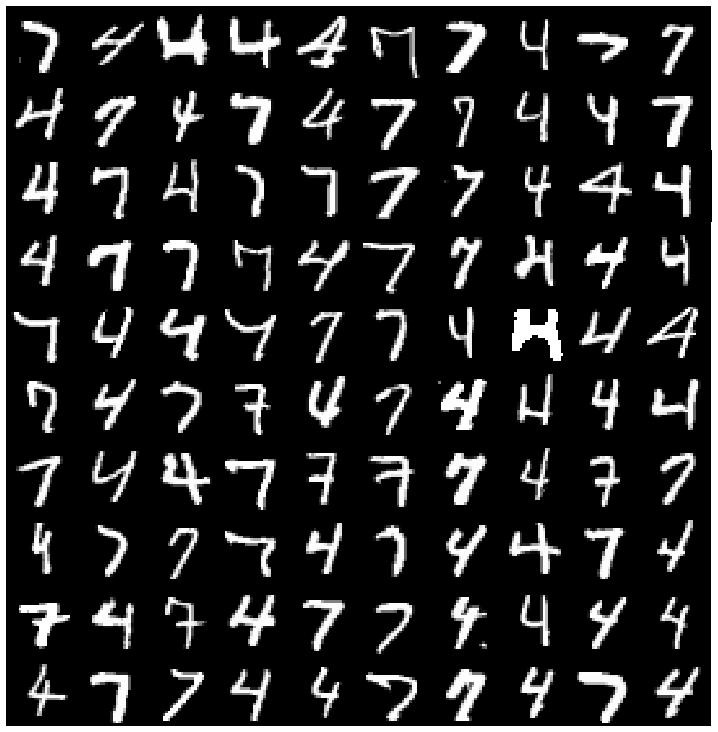 7 4 4 4 4 7 7 4 7 7
4 7 4 7 4 7 7 4 4 7
4 7 4 7 7 7 7 4 4 4
4 7 7 7 4 7 7 4 4 4
7 4 4 4 7 7 4 4 4 4
7 4 7 7 4 7 4 4 4 4
7 4 4 7 7 7 7 4 7 7
4 7 7 7 4 7 4 4 7 4
7 4 7 4 7 7 4 4 4 4
4 7 7 4 4 7 7 4 7 4